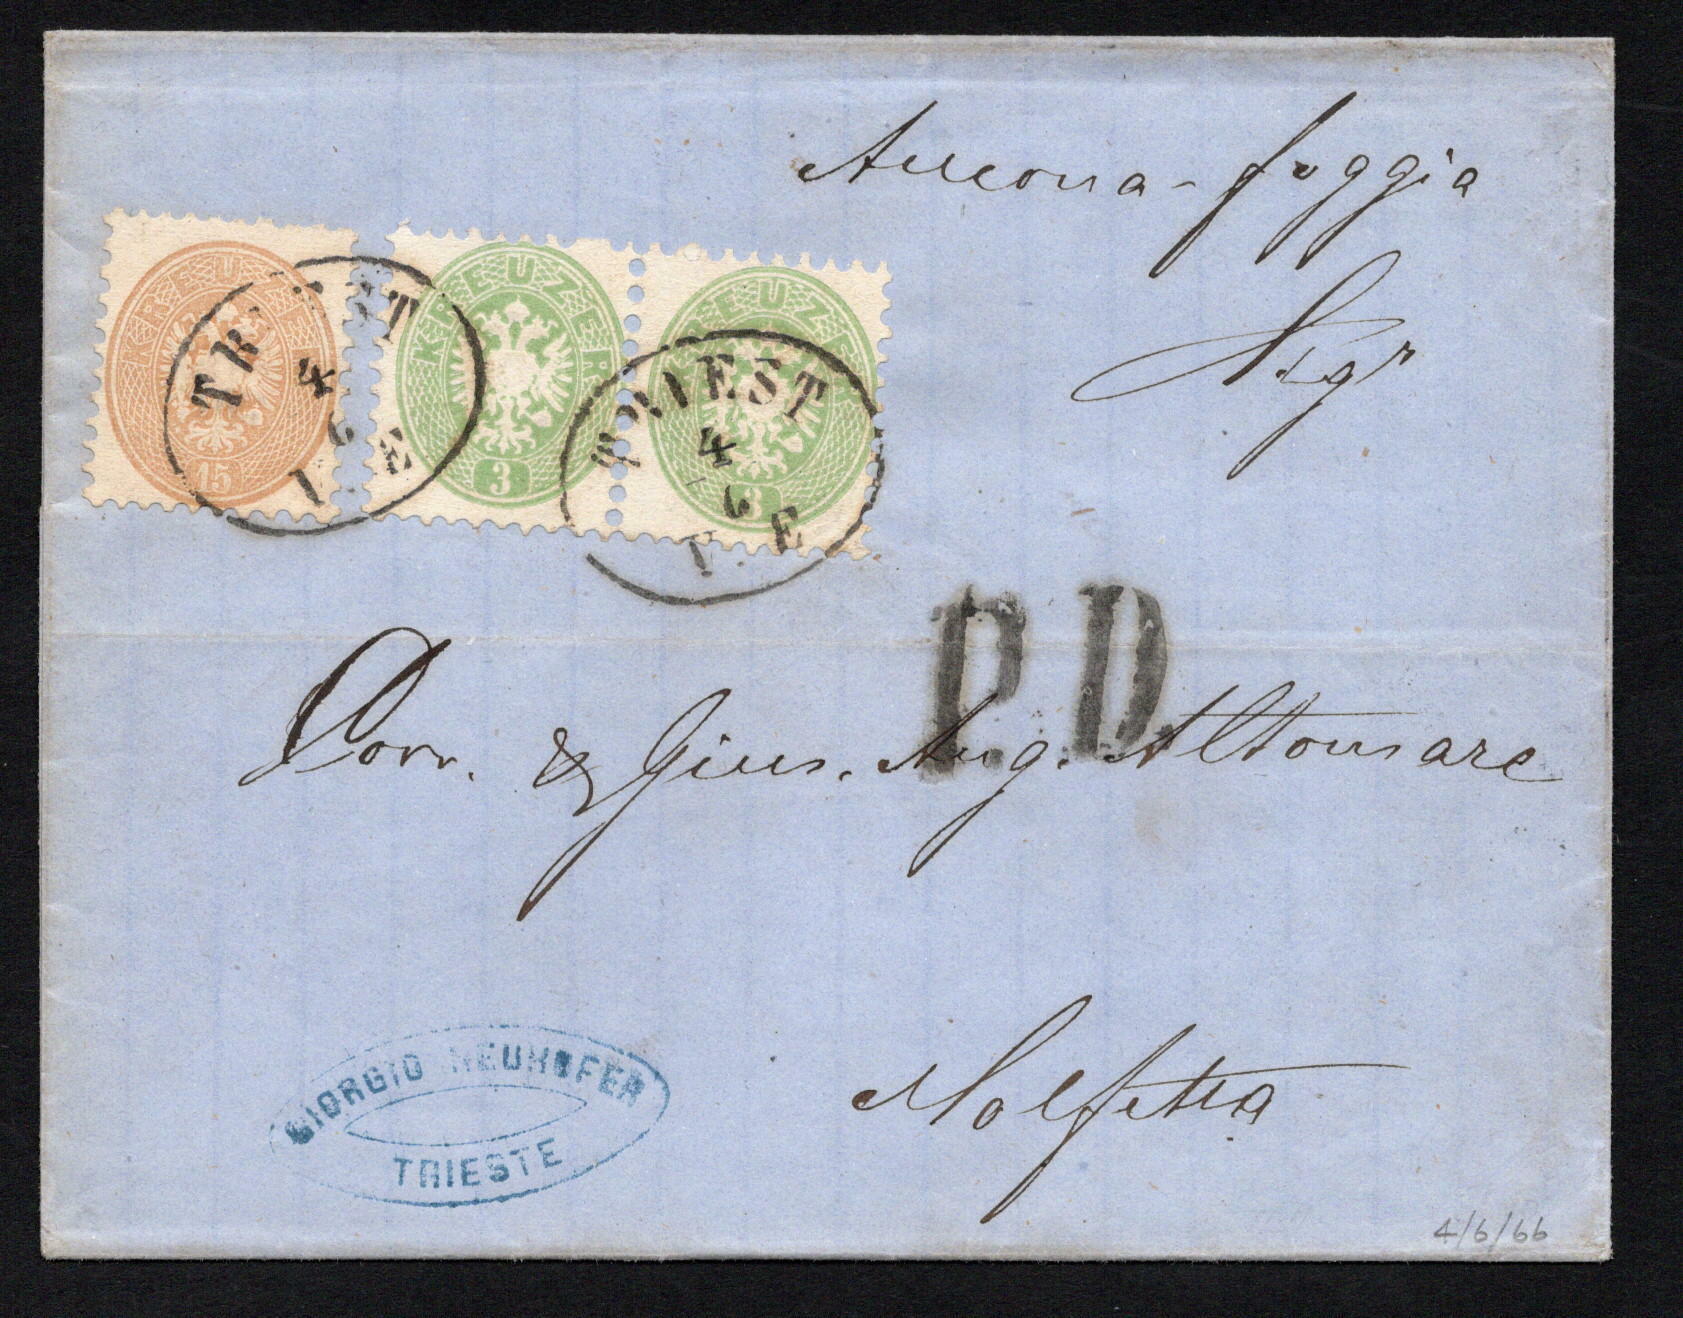 Ancona - foggia
Sigr
KREUZER
15
KREUZER
3
KREUZER
3
TRIEST
4
6
E
TRIEST
4
6
E
P.D.
& Gius. Aug. Altomare
Molfetta
GIORGIO NEUHOFER
TRIESTE
4/6/66